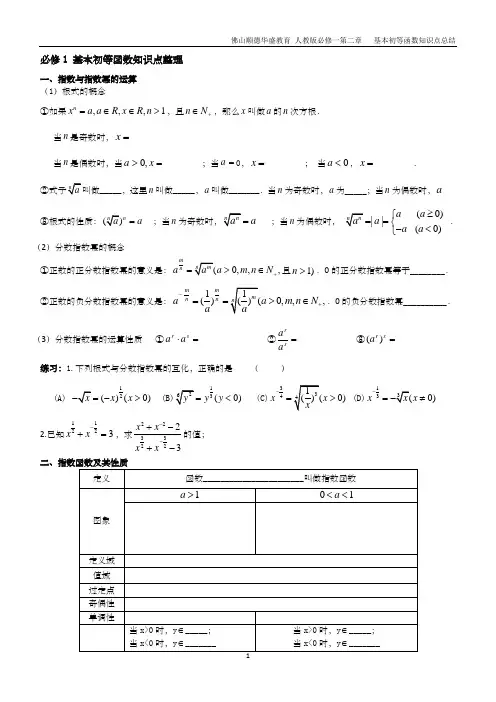 佛山顺德华盛教育 人教版必修一第二章 基本初等函数知识点总结
必修1 基本初等函数知识点整理
一、指数与指数幂的运算
(1) 根式的概念
①如果xⁿ = a, a ∈ R, x ∈ R, n > 1, 且 n ∈ N₊, 那么 x 叫做 a 的 n 次方根.
当 n 是奇数时, x =
当 n 是偶数时, 当 a > 0, x = ; 当 a = 0, x = ; 当 a < 0, x = .
②式子 ⁿ√a 叫做_____, 这里 n 叫做_____, a 叫做_______. 当 n 为奇数时, a 为_____; 当 n 为偶数时, a
③根式的性质: (ⁿ√a)ⁿ = a ; 当 n 为奇数时, ⁿ√aⁿ = a ; 当 n 为偶数时, ⁿ√aⁿ = |a| = { a (a ≥ 0) −a (a < 0) .
(2) 分数指数幂的概念
①正数的正分数指数幂的意义是: a^(m/n) = ⁿ√aᵐ (a > 0, m, n ∈ N₊, 且 n > 1). 0 的正分数指数幂等于________.
②正数的负分数指数幂的意义是: a^(−m/n) = (1/a)^(m/n) = ⁿ√(1/a)ᵐ (a > 0, m, n ∈ N₊, . 0 的负分数指数幂__________.
(3) 分数指数幂的运算性质 ① aʳ · aˢ = ② aʳ/aˢ = ③ (aʳ)ˢ =
练习: 1.下列根式与分数指数幂的互化, 正确的是 ( )
(A) −√x = (−x)^(1/2) (x > 0) (B) ⁶√y² = y^(1/3) (y < 0) (C) x^(−3/4) = ⁴√(1/x)³ (x > 0) (D) x^(−1/3) = −³√x (x ≠ 0)
2.已知 x^(1/2) + x^(−1/2) = 3, 求 (x² + x⁻² − 2)/(x^(3/2) + x^(−3/2) − 3) 的值;
二、指数函数及其性质
定义 函数_______________________叫做指数函数
图象 a > 1 0 < a < 1
定义域
值域
过定点
奇偶性
单调性
当 x>0 时, y∈_____; 当 x>0 时, y∈_____;
当 x<0 时, y∈_______ 当 x<0 时, y∈_______
1